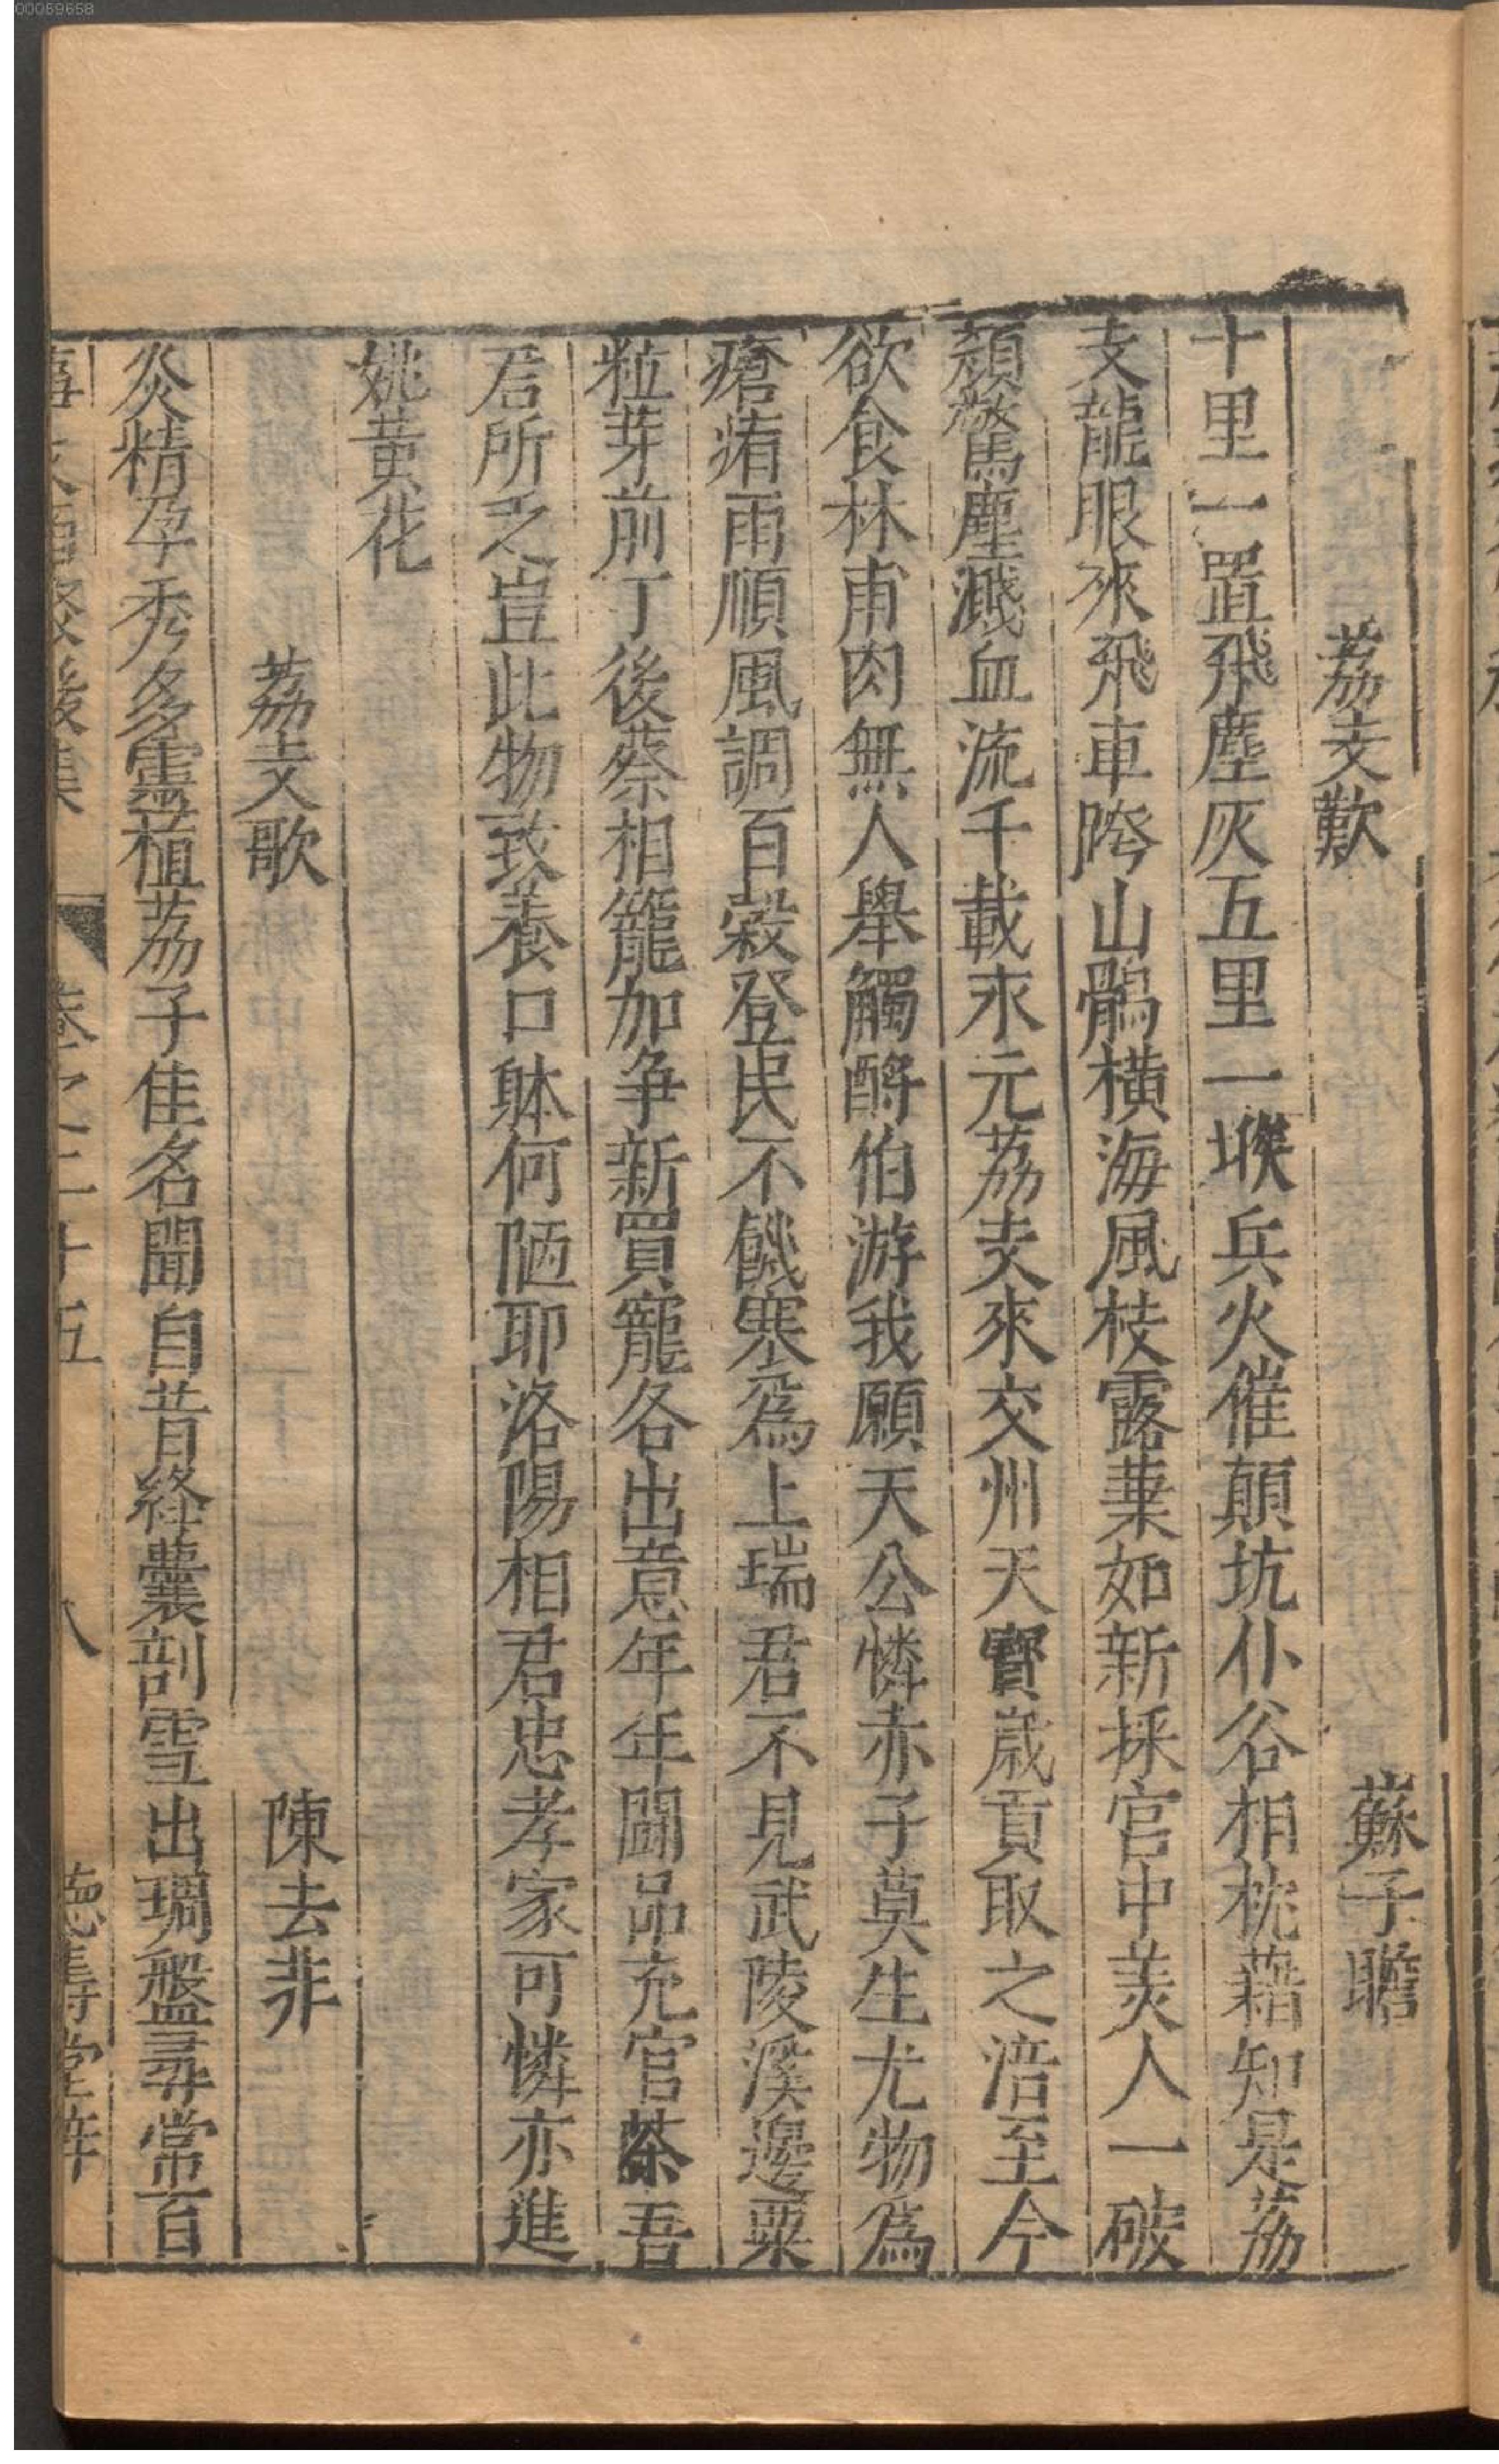 荔支歎　蘇子瞻
十里一置飛塵灰五里一堠兵火催顛坑仆谷相枕藉知是荔
支龍眼來飛車跨山鶻橫海風枝露葉如新採官中美人一破
顏驚塵濺血流千載永元荔支來交州天寶歲貢取之涪至今
欲食林甫肉無人舉觴酹伯游我願天公憐赤子莫生尤物爲
瘡痏雨順風調百穀登民不饑寒爲上瑞君不見武陵溪邊粟
粒芽前丁後蔡相籠加争新買寵各出意年年鬪品充官茶吾
君所之豈此物致養口躰何陋耶洛陽相君忠孝家可憐亦進
姚黃花
荔支歌　陳去非
炎精孕秀多靈植荔子佳名聞自昔絳囊剖雪出琱盤尋常百
卷之二十五　八　德壽堂梓
00059658